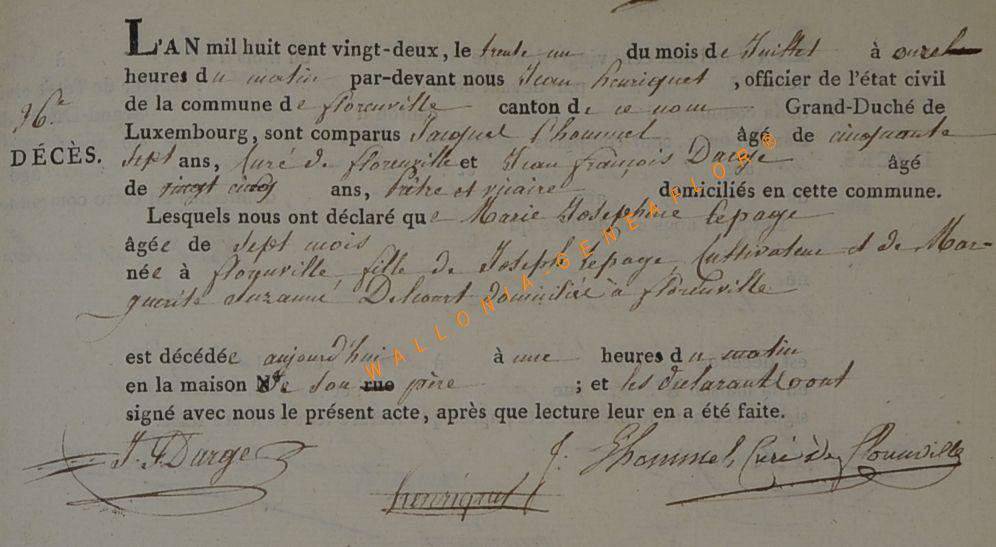 L'AN mil huit cent vingt-deux, le trente un du mois de Juillet à onze
heures du matin par-devant nous Jean henriquet, officier de l'état civil
36e
de la commune de florenville canton de ce nom Grand-Duché de
DÉCÈS.
Luxembourg, sont comparus Jacques l'hommel âgé de cinquante
sept ans, Curé de florenville et Jean françois Darge âgé
de vingt cinq ans, Prêtre et vicaire domiciliés en cette commune.
Lesquels nous ont déclaré que Marie Josephine lepage
âgée de sept mois
née à florenville fille de Joseph lepage, Cultivateur et de Mar-
guerite Suzanne Delcourt domiciliée à florenville
est décédée aujourd'hui à une heures du matin
en la maison de son rue père ; et les déclarants ont
signé avec nous le présent acte, après que lecture leur en a été faite.
J. F Darge J. Lhommel, Curé de florenville
henriquet
WALLONIA-GENEAPLOR®